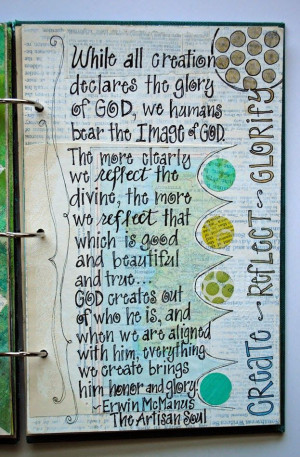 While all creation
declares the glory
of GOD, we humans
bear the IMAGE of GOD.
The more clearly
we reflect the
divine, the more
we reflect that
which is good
and beautiful
and true...
GOD creates out
of who he is, and
when we are aligned
with him, everything
we create brings
him honor and glory!
~Erwin McManus
The Artisan Soul
CREATE ~ REFLECT ~ GLORIFY